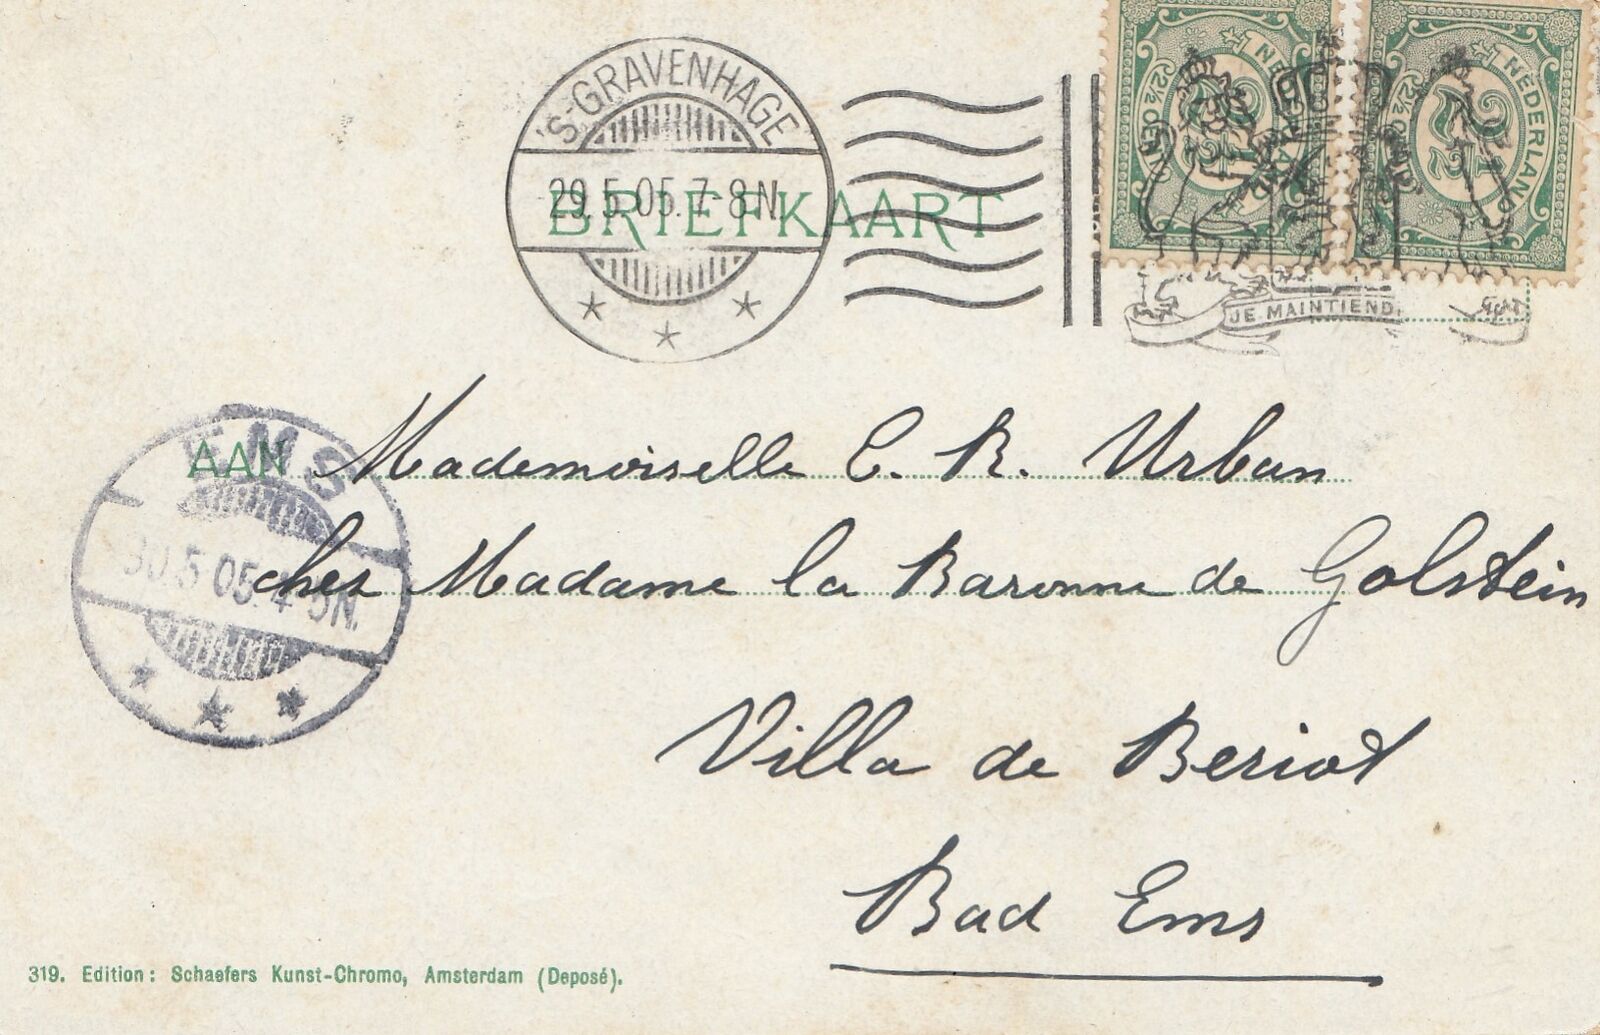 'S-GRAVENHAGE
29.5.05.7-8N.
BRIEFKAART
NEDERLAND
2½ CENT
NEDERLAND
2½
JE MAINTIENDRAI
EMS
30.5.05.4-5N.
AAN Mademoiselle C. R. Urban
chez Madame la Baronne de Golstein
Villa de Beriot
Bad Ems
319. Edition: Schaefers Kunst-Chromo, Amsterdam (Deposé).